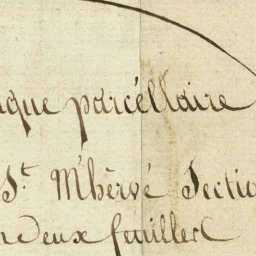 que parcéllaire
St. M'hèrvé Sectio
n deux feuilles